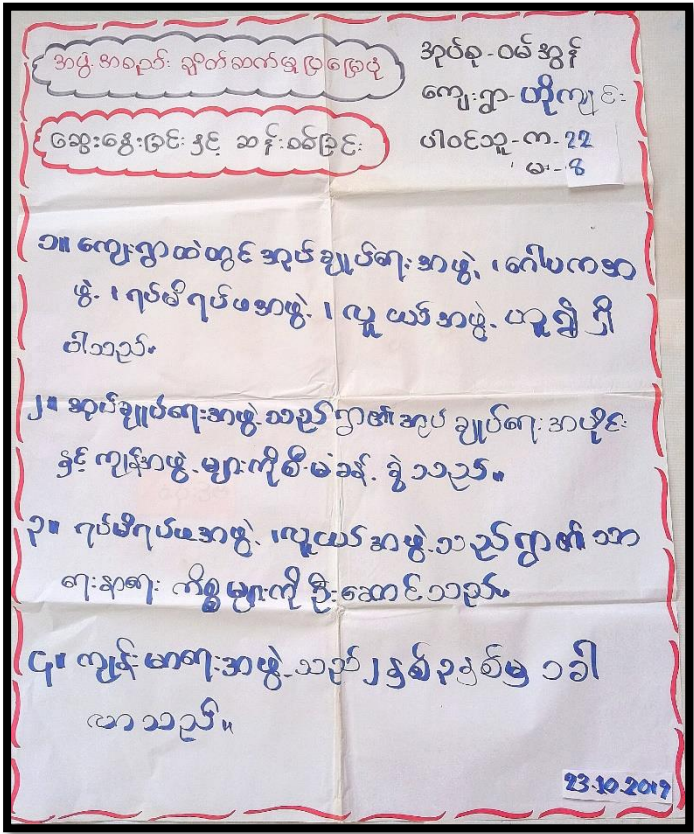 အဖွဲ့အစည်း ချိတ်ဆက်မှုပြမြေပုံ
ဆွေးနွေးခြင်းနှင့် ဆန်းစစ်ခြင်း
အုပ်စု-ဝမ်အွန်
ကျေးရွာ-ဟိုကျင်း
ပါဝင်သူ-က-22
မ-8
၁။ ကျေးရွာထဲတွင်အုပ်ချုပ်ရေးအဖွဲ့၊ ဂေါပကအ
ဖွဲ့၊ ရပ်မိရပ်ဖအဖွဲ့၊ လူငယ်အဖွဲ့ ဟူ၍ရှိ
ပါသည်။
၂။ အုပ်ချုပ်ရေးအဖွဲ့သည်ရွာ၏အုပ်ချုပ်ရေးအပိုင်း
နှင့် ကျန်အဖွဲ့များကိုစီမံခန့်ခွဲသည်။
၃။ ရပ်မိရပ်ဖအဖွဲ့၊ လူငယ်အဖွဲ့သည်ရွာ၏သာ
ရေးနာရေး ကိစ္စများကိုဦးဆောင်သည်။
၄။ ကျန်းမာရေးအဖွဲ့သည်၂နှစ်၃နှစ်မှ ၁ခါ
လာသည်။
23.10.2019